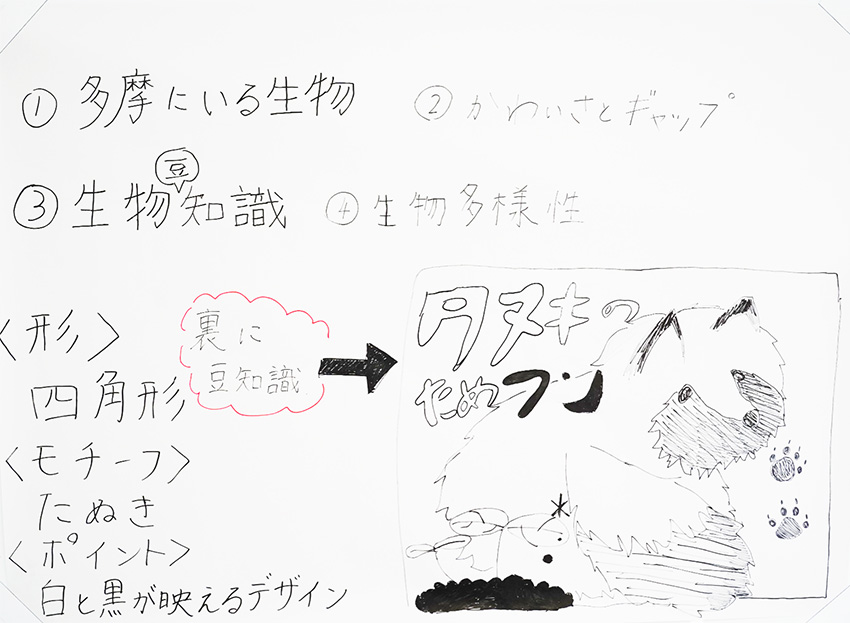 ① 多摩にいる生物
② かわいさとギャップ
③ 生物豆知識
④ 生物多様性
〈形〉
四角形
裏に
豆知識
〈モチーフ〉
たぬき
〈ポイント〉
白と黒が映えるデザイン
タヌキの
ためフン